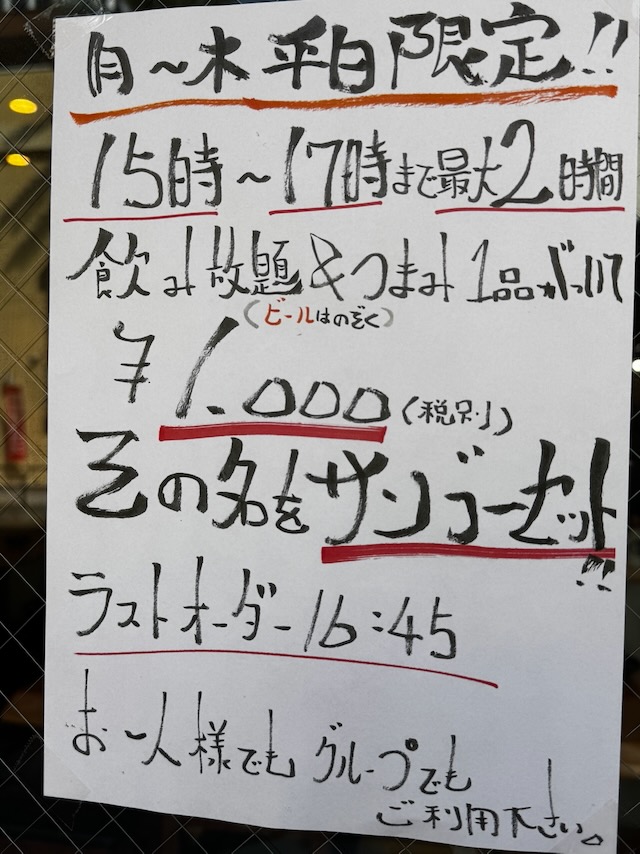 月〜水 平日限定!!
15時〜17時まで最大2時間
飲み放題&つまみ1品がついて
(ビールはのぞく)
¥1.000(税別)
その名をサンゴーセット!!
ラストオーダー16:45
お一人様でもグループでも
ご利用下さい。